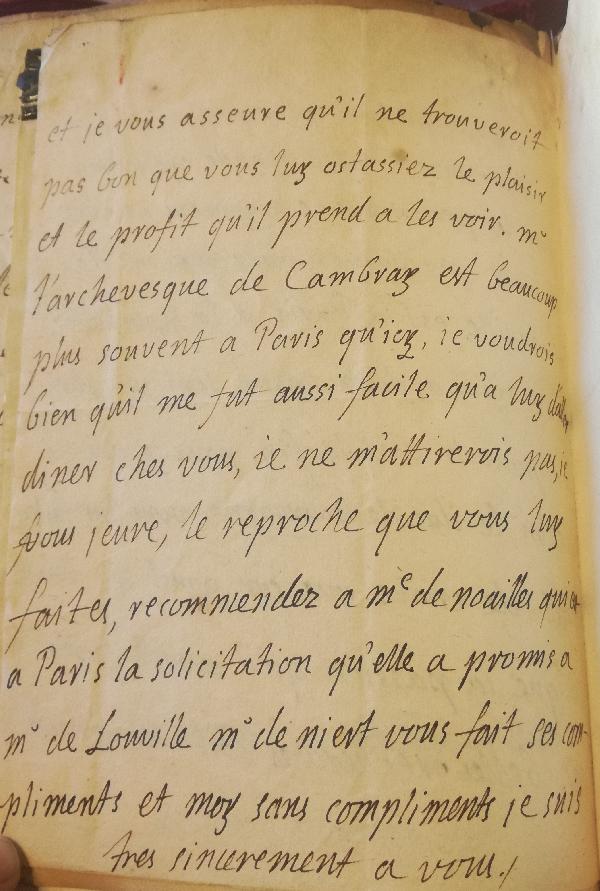 et je vous asseure qu'il ne trouveroit
pas bon que vous luy ostassiez le plaisir
et le profit qu'il prend a les voir. mr
l'archevesque de Cambray est beaucoup
plus souvent a Paris qu'icy, ie voudrois
bien quil me fut aussi facile qu'a luy d'aller
diner ches vous, ie ne m'attirerois pas, ie
vous jeure, le reproche que vous luy
faites, recommendez a me de noailles qui est
a Paris la solicitation qu'elle a promis a
mr de Louville mr de niert vous fait ses com-
pliments et moy sans compliments je suis
tres sincerement a vous./